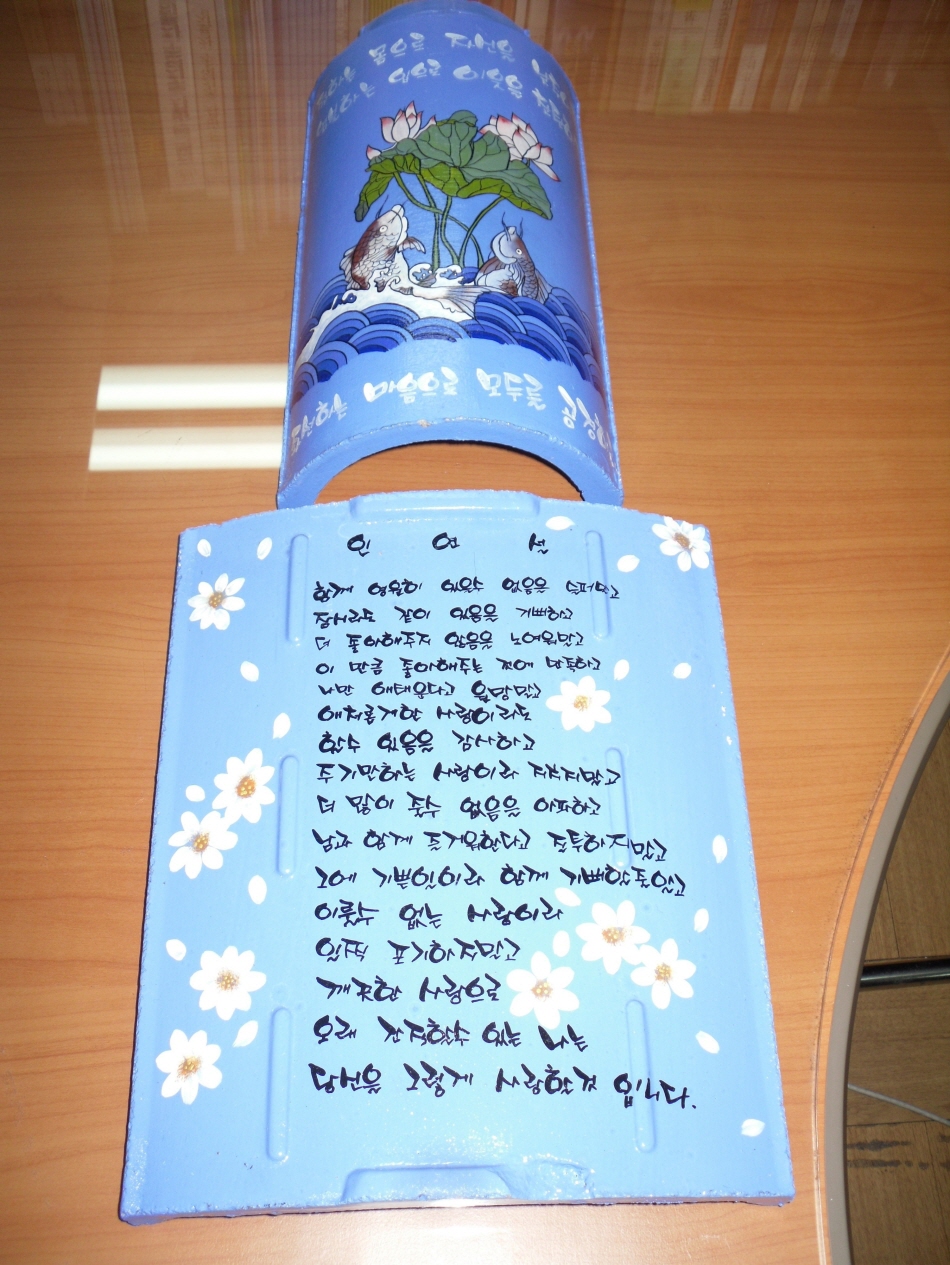 몸으로 자신을
입으로 이웃을
마음으로 모두를
인 연 설
함께 영원히 있을수 없음을 슬퍼말고
잠시라도 같이 있음을 기뻐하고
더 좋아해주지 않음을 노여워말고
이 만큼 좋아해주는 것에 만족하고
나만 애태운다고 원망말고
애처롭게한 사랑이라도
할수 있음을 감사하고
주기만하는 사랑이라 지치지말고
더 많이 줄수 없음을 아파하고
남과 함께 즐거워한다고 질투하지말고
그에 기쁨일이라 함께 기뻐할줄알고
이룰수 없는 사랑이라
일찍 포기하지말고
깨끗한 사랑으로
오래 간직할수 있는 나는
당신을 그렇게 사랑할것 입니다.